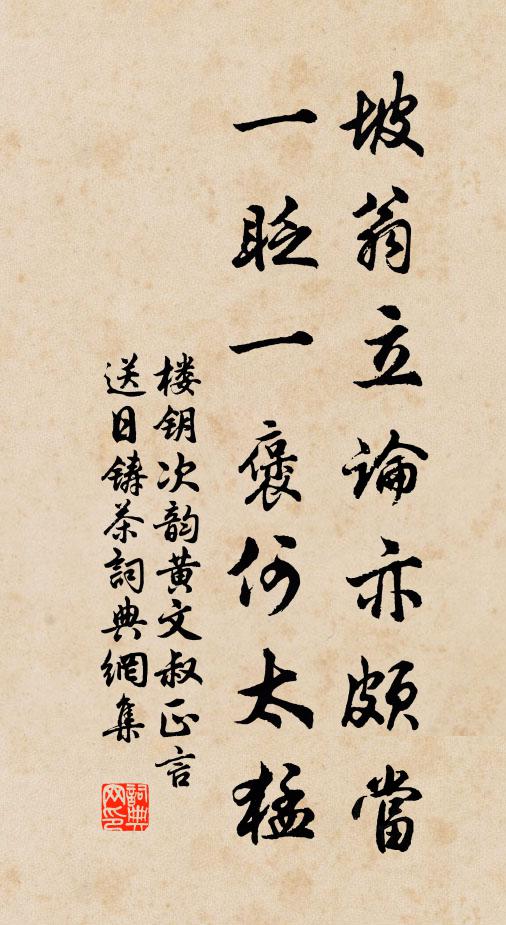 坡翁立論亦頗當
一眨一褒何太猛
楼钥次韵黄文叔正言
送日鑄茶詞典網集
詞典网印